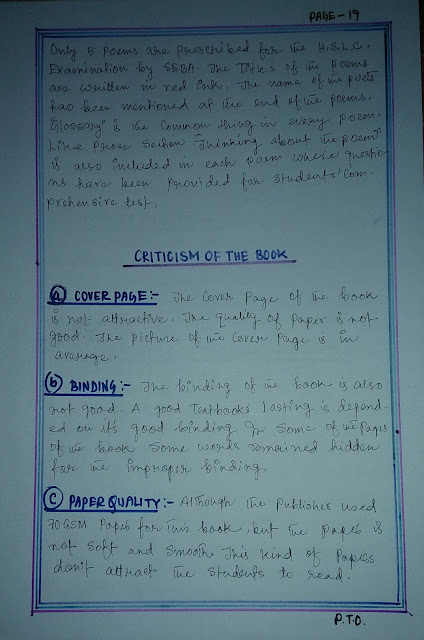 PAGE-19
Only 5 poems are prescribed for the H.S.L.C.
Examination by SEBA. The Titles of the poems
are written in red ink. The name of the poets
has been mentioned at the end of the poems.
'Glossary' is the common thing in every poem.
Like prose section 'Thinking about the poem'
is also included in each poem where questio-
ns have been provided for students' com-
prehensive test.
CRITICISM OF THE BOOK
(a) COVER PAGE:- The cover page of the book
is not attractive. The quality of paper is not
good. The picture of the cover page is in
average.
(b) BINDING:- The binding of the book is also
not good. A good Textbooks lasting is depend-
ed on it's good binding. In some of the pages
of the book some words remained hidden
for the improper binding.
(C) PAPER QUALITY:- Although the publisher used
70 GSM Paper for this book, but the paper is
not soft and smooth. This kind of papers
don't attract the students to read.
P.T.O.